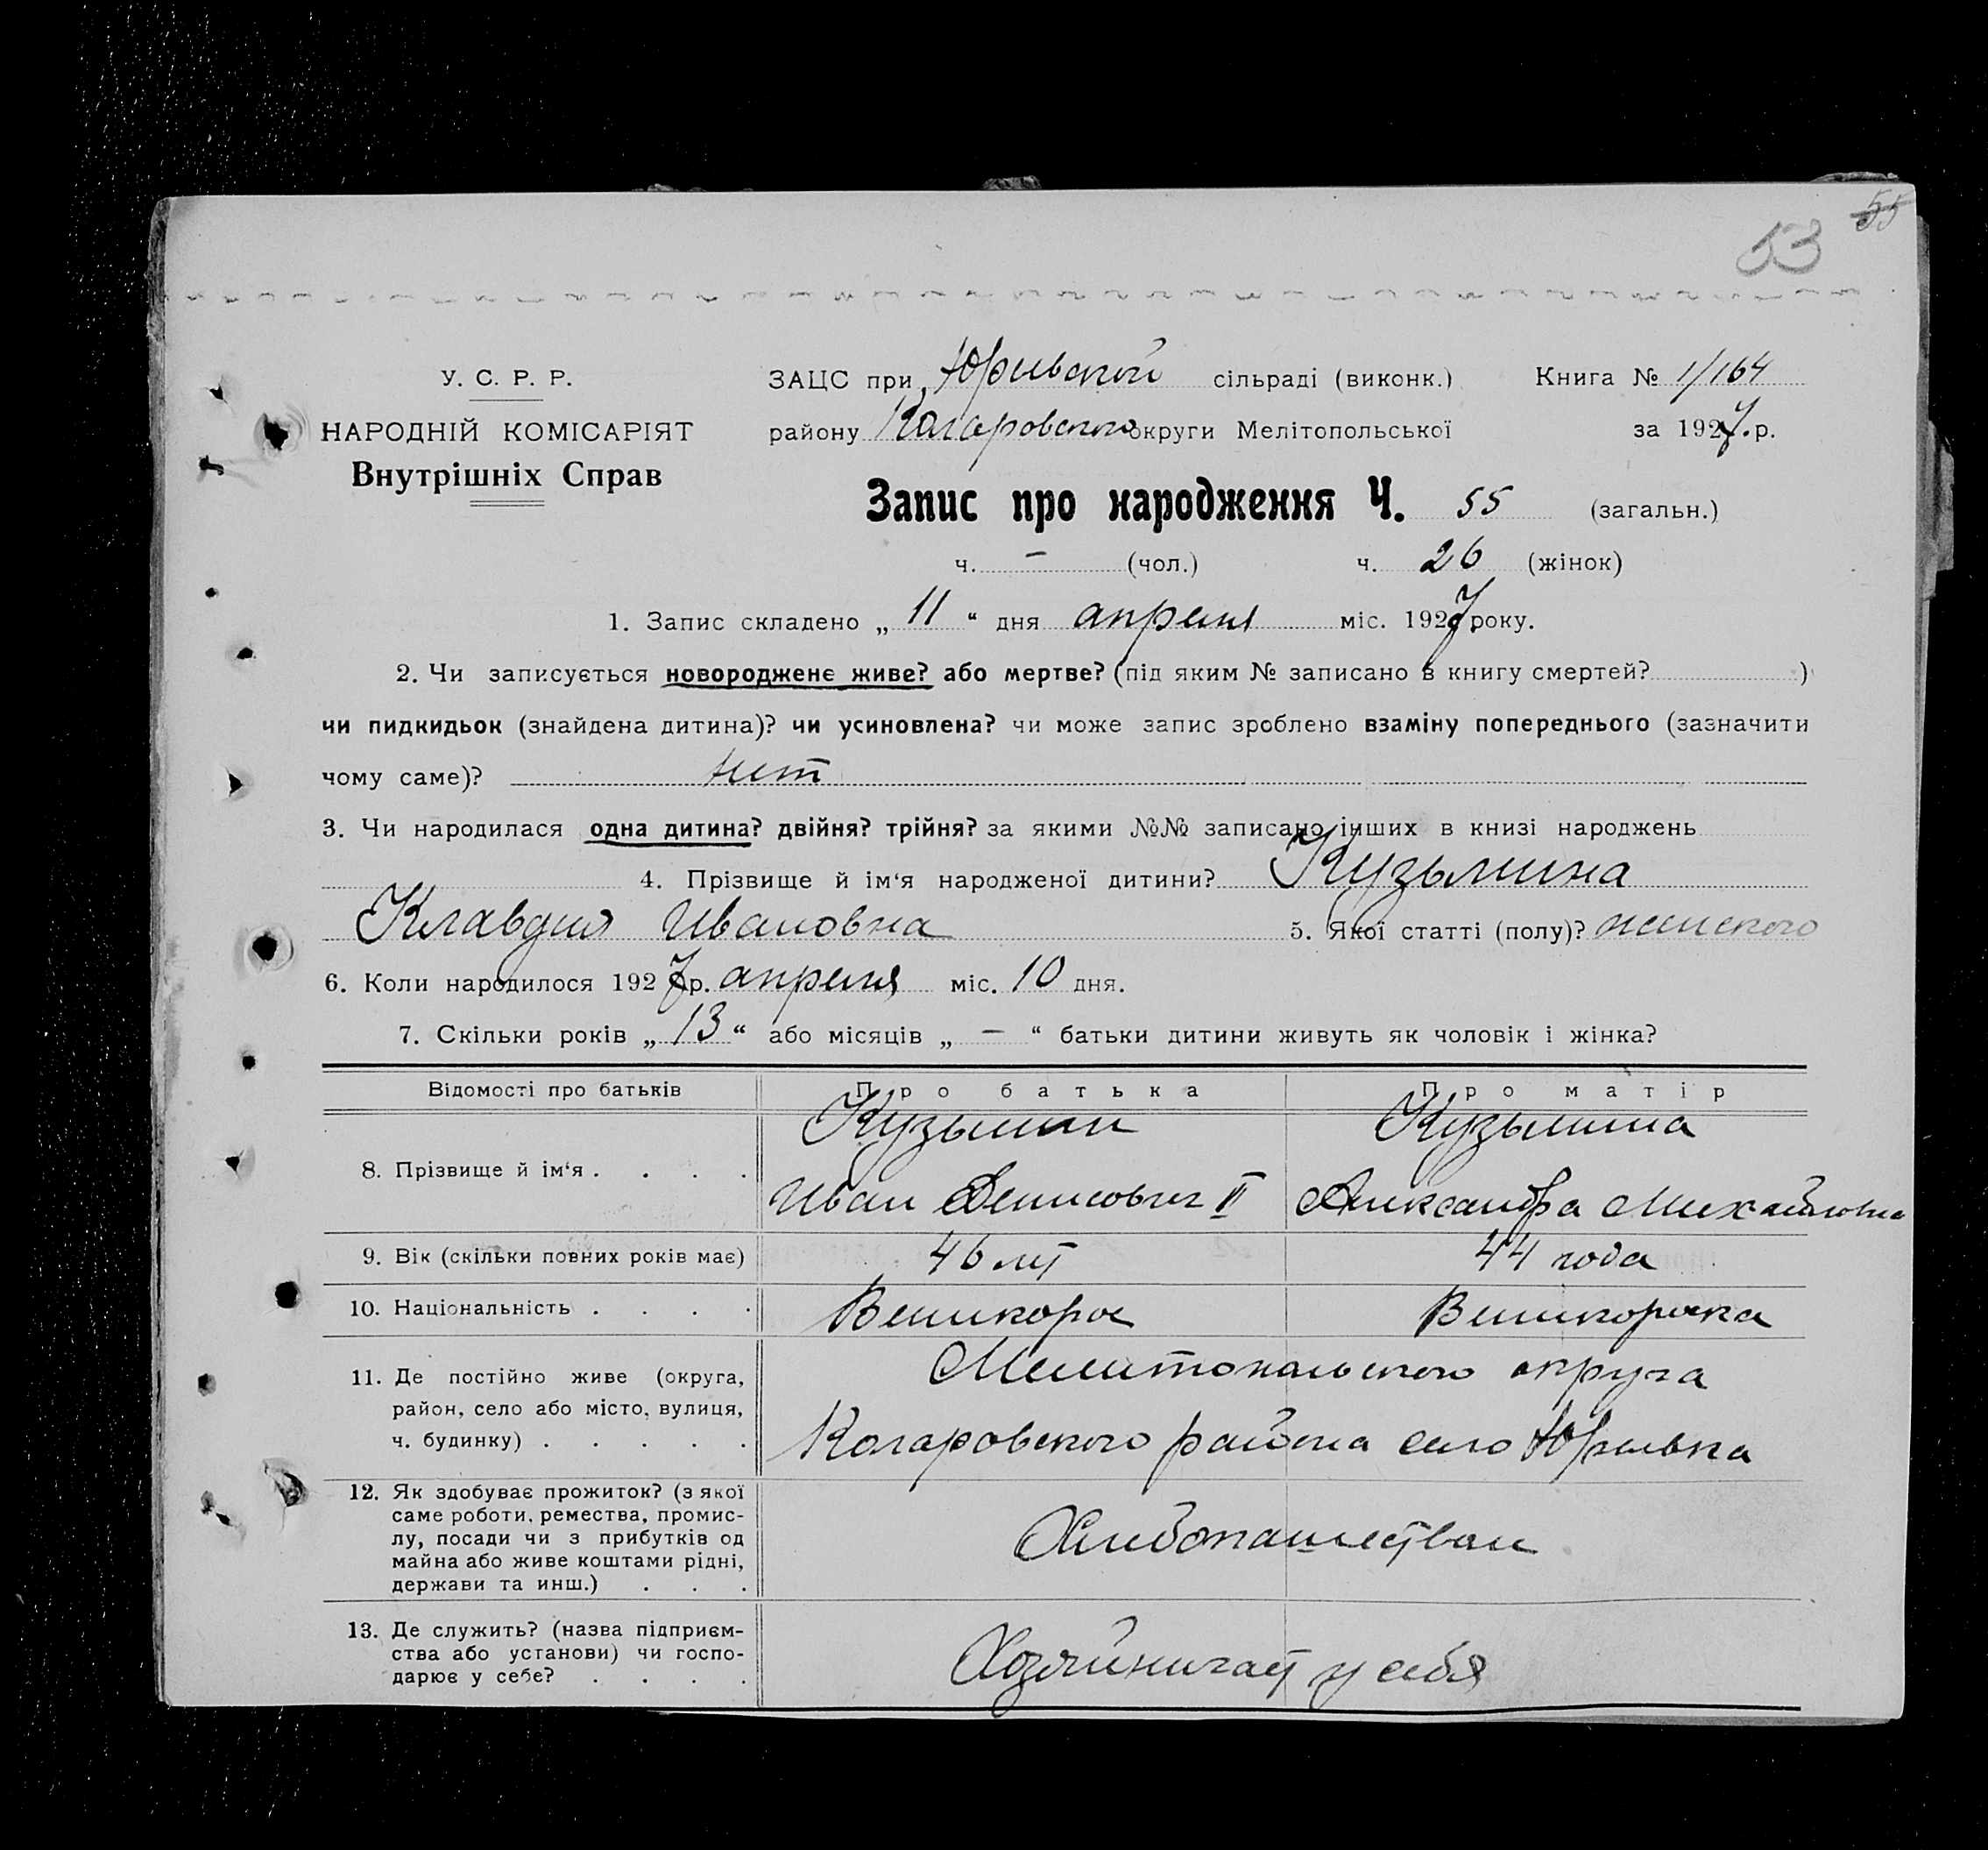 55
53
У. С. Р. Р.
НАРОДНІЙ КОМІСАРІЯТ
Внутрішніх Справ
ЗАЦС при Юрьевской сільраді (виконк.) Книга № 1/164
району Коларовского округи Мелітопольської за 1927 р.
Запис про народження Ч. 55 (загальн.)
ч. — (чол.) ч. 26 (жінок)
1. Запис складено „ 11 “ дня апреля міс. 1927 року.
2. Чи записується новороджене живе? або мертве? (під яким № записано в книгу смертей? )
чи пидкидьок (знайдена дитина)? чи усиновлена? чи може запис зроблено взаміну попереднього (зазначити
чому саме)? нет
3. Чи народилася одна дитина? двійня? трійня? за якими №№ записано інших в книзі народжень
4. Прізвище й ім‘я народженої дитини? Кузьмина
Клавдия Ивановна 5. Якої статті (полу)? женского
6. Коли народилося 1927 р. апреля міс. 10 дня.
7. Скільки років „ 13 “ або місяців „ — “ батьки дитини живуть як чоловік і жінка?
Відомості про батьків Про батька Про матір
8. Прізвище й ім‘я . . . . Кузьмин Кузьмина
Иван Денисович II Александра Михайловна
9. Вік (скільки повних років має) 46 лет 44 года
10. Національність . . . . Великорос Великороска
11. Де постійно живе (округа, район, село або місто, вулиця, ч. будинку) . . . . . Мелитопольского округа
Коларовского района село Юрьевка
12. Як здобуває прожиток? (з якої
саме роботи, ремества, промис-
лу, посади чи з прибутків од
майна або живе коштами рідні,
держави та инш.) . . . Хлебопашеством
13. Де служить? (назва підприєм-
ства або установи) чи госпо-
дарює у себе? . . . . Хозяйничает у себя